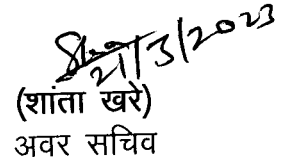 21/3/2023
(शांता खरे)
अवर सचिव